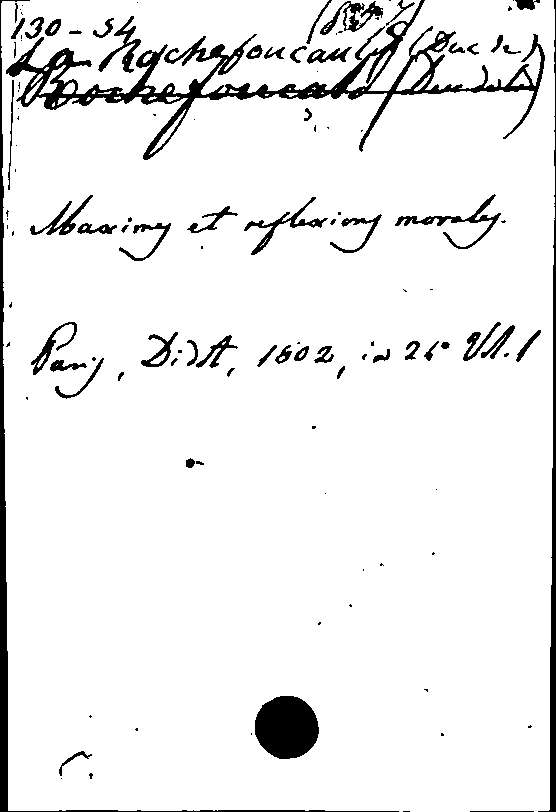 130-54
La Rochefoucauld (Duc de)
Rochefoucauld (Duc de la)
Maximes et reflexions morales.
Paris, Didot, 1802, in Vol. 1